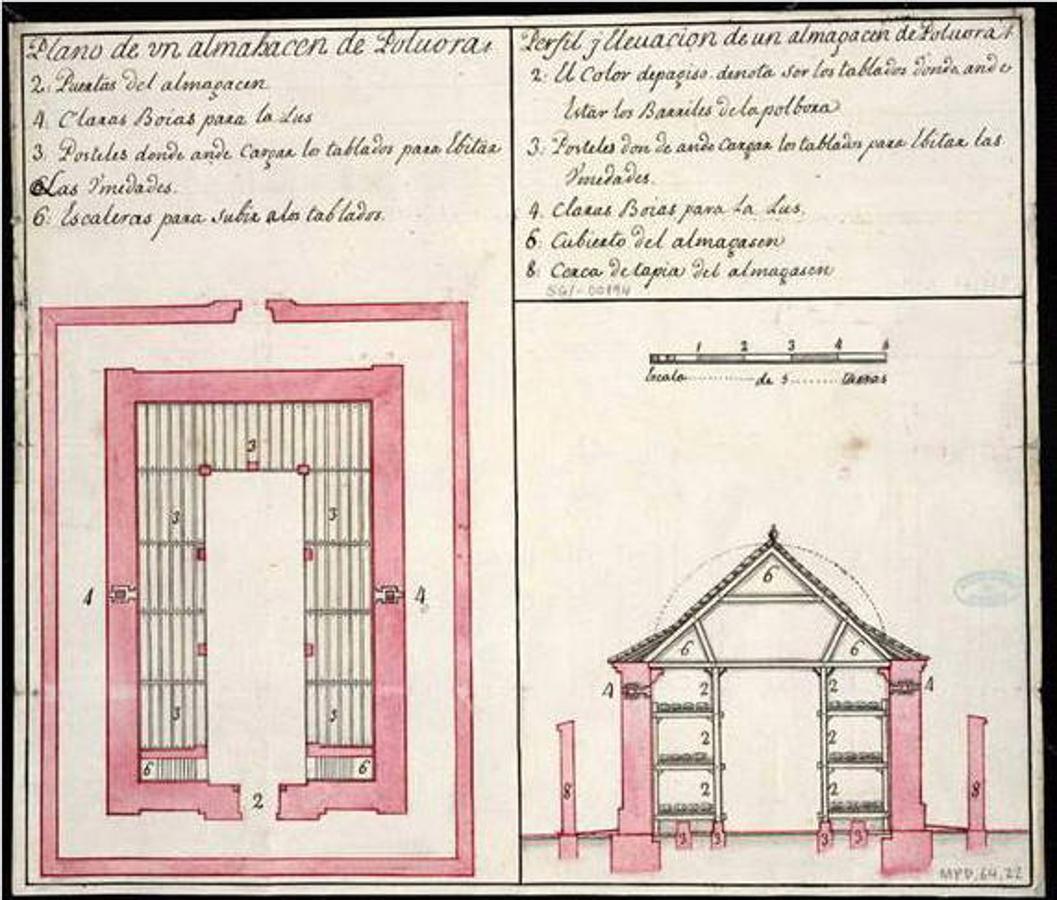 Plano de vn almahacen de Poluora.
2. Puertas del almaçacen
4. Claras Boias para la Lus
3. Posteles donde ande Cargar los tablados para Ebitar
Las Vmedades.
6. Escaleras para subir alos tablados.
3
3
3
4
4
3
3
6
6
2
Perfil j Eleuacion de un almaçacen de Poluora
2. El Color depagiso. denota ser los tablados donde ande
Estar los Barriles de la polbora
3. Posteles don de ande Cargar los tablados para Ebitar las
Vmedades.
4. Claras Boias para La Lus.
6. Cubierto del almaçasen
8. Cerca de tapia del almaçasen
SGI-00894
1 2 3 4
Escala de 5 Uaras
6
6 6
4 2 2 4
2 2
8 2 2 8
3 3 3 3
MPD, 64, 22